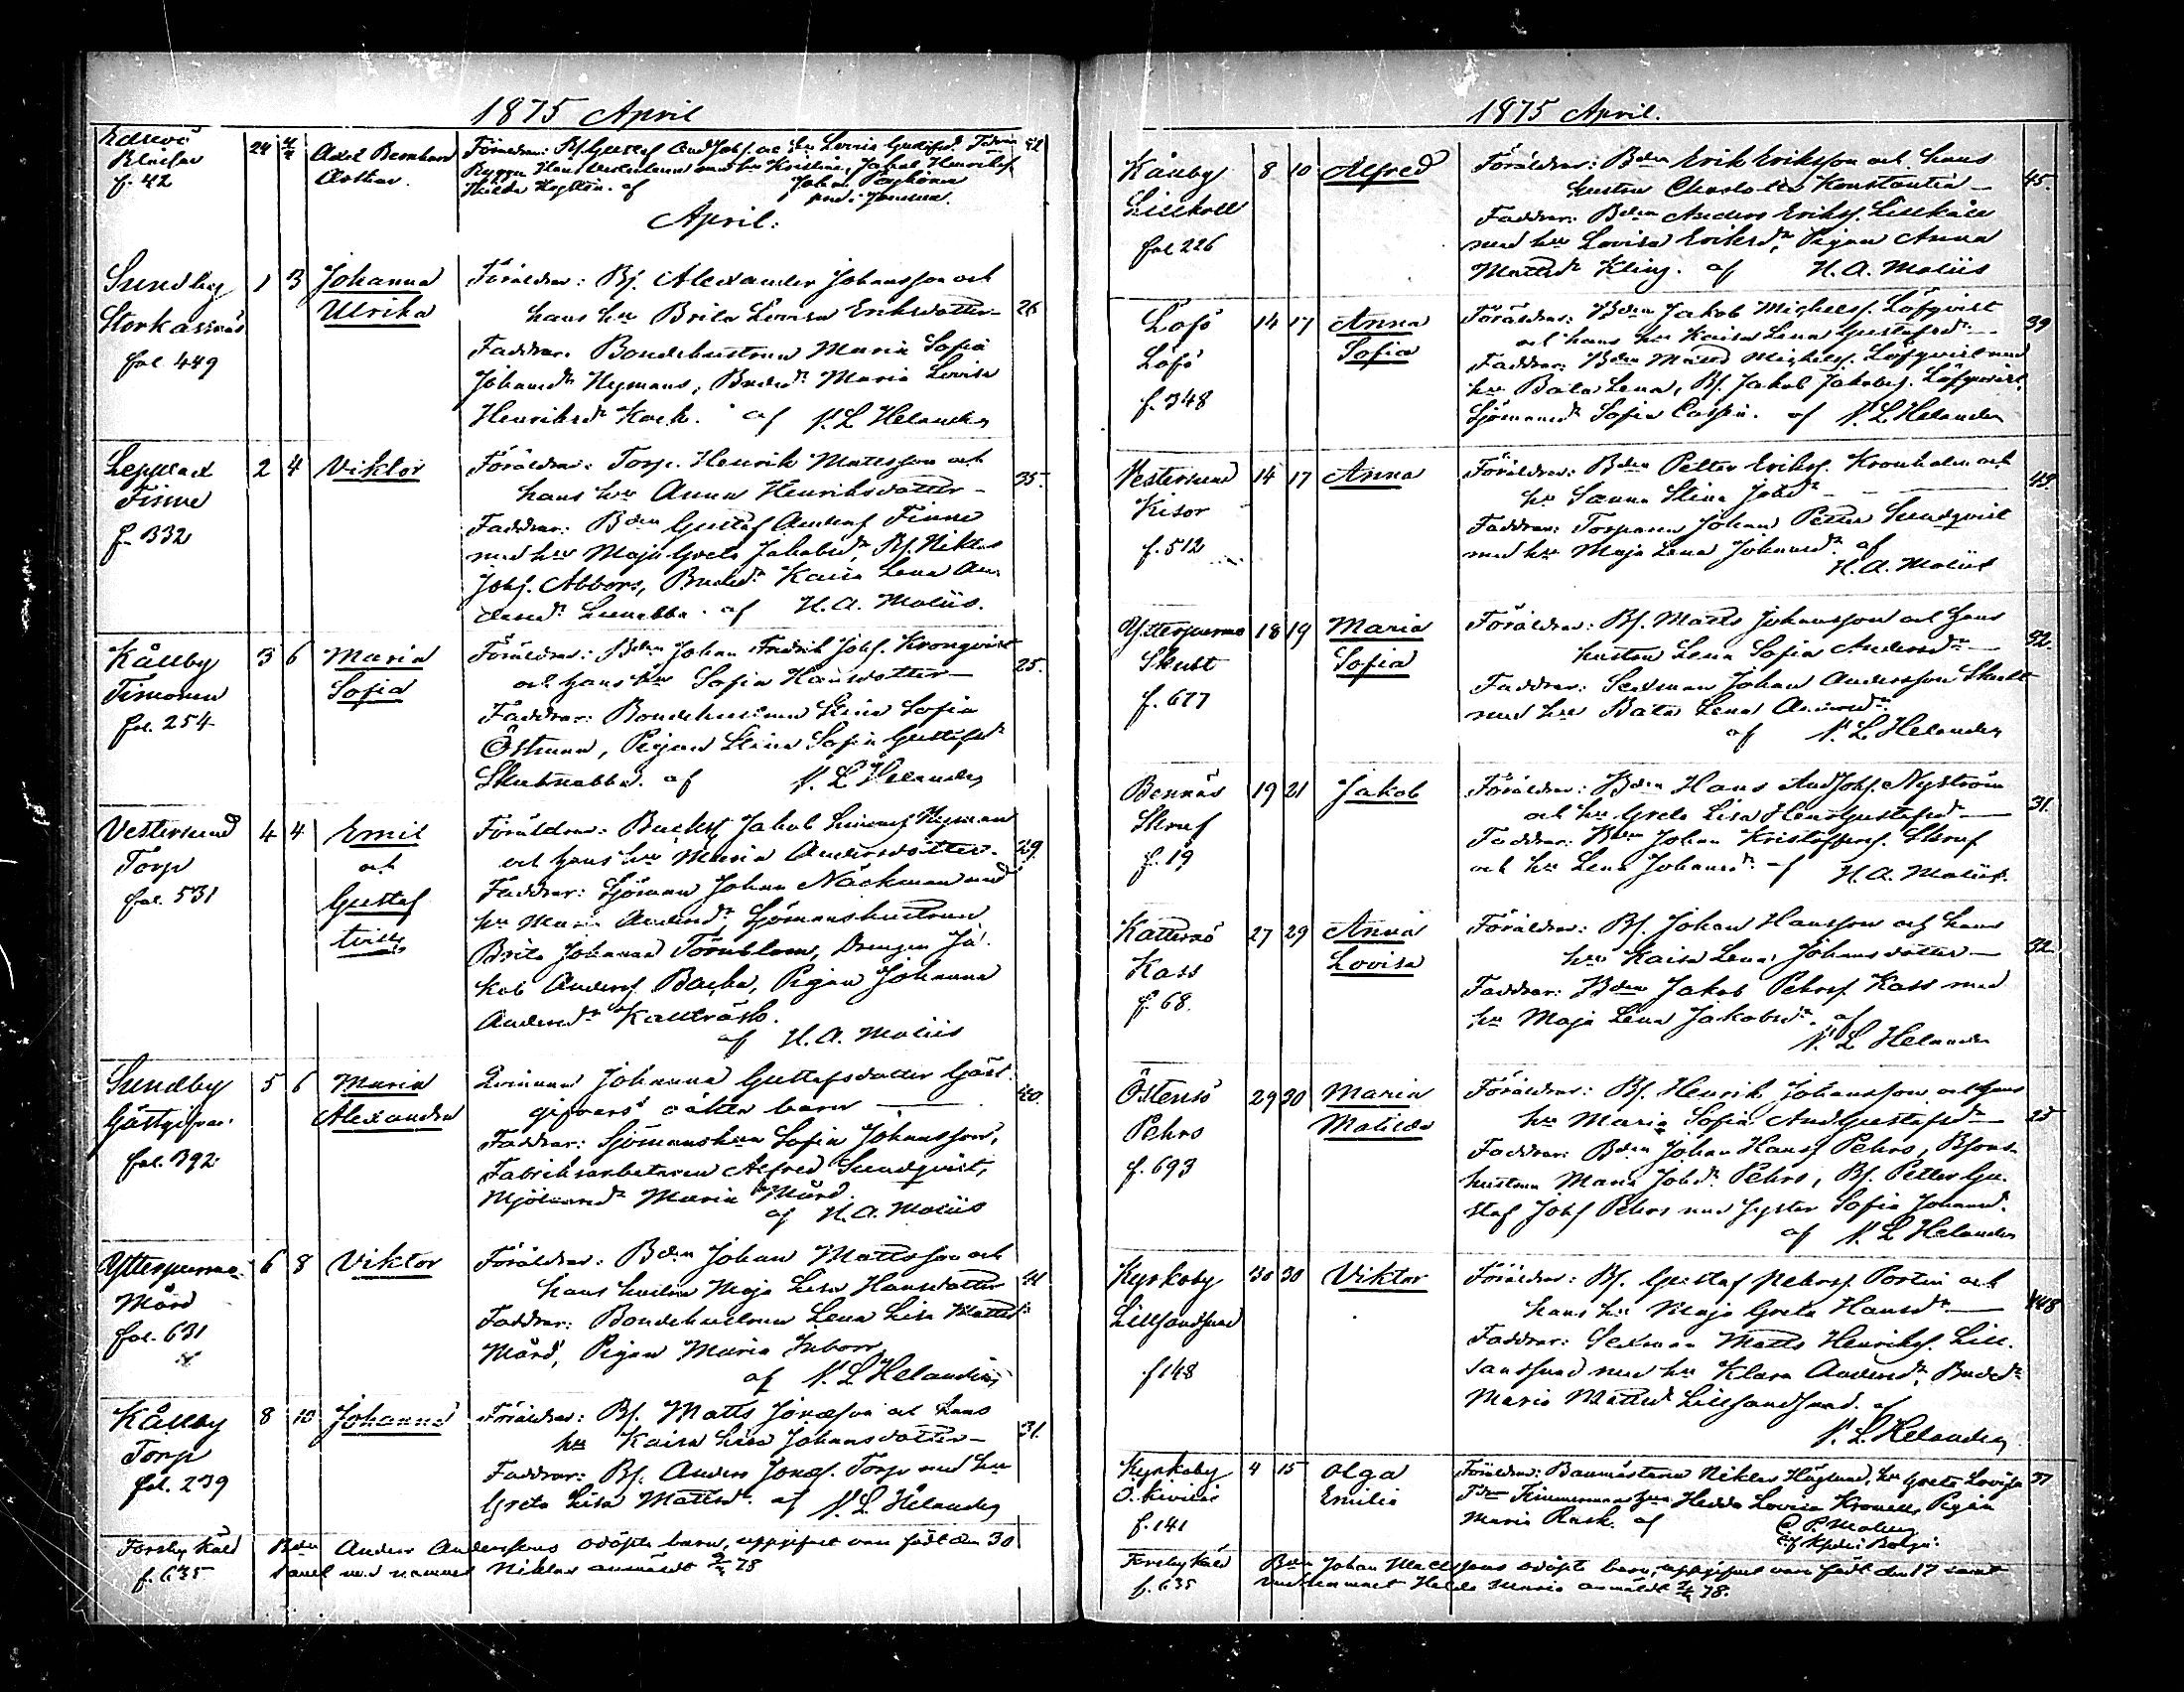 1875 April
f. 42
24
Axel Bernhard
Arthur
Föräldrar: Bs. Gustaf And. Johs. och hu Lovisa Gustafsd.
42
af
April.
Sundby
Storkassnäs
fol 449
1 3
Johanna
Ulrika
Föräldrar: Bs. Alexander Johansson och
hans hu Brita Lovisa Eriksdotter –
26
Faddrar: Bondehustrun Maria Sofia
Johansdr Hymans, Bndedr Maria Lovisa
Henriksdr Kock. af N. L Helander
Lepplax
Finne
f. 332
2 4
Viktor
Föräldrar: Torp. Henrik Mattsson och
hans hu Anna Henriksdotter –
35.
Faddrar: Bden Gustaf Andersf Finne
med hu Maja Greta Jakobsdr, Bs. Niklas
Johs. Abbors, Bndedr Kaisa Lena An-
dersdr Lunabba. af H. A. Moliis.
Kållby
Timonen
fol. 254
3 6
Maria
Sofia
Föräldrar: Bden Johan Fredrik Johs. Kronqvist
och hans hu Sofia Hansdotter –
25.
Faddrar: Bondehustrun Stina Sofia
Östman, Pigan Stina Sofia Gustafsdr
Skutnabba. af N. L Helander
Vestersund
Torp
fol. 531
4 4
Emil
och
Gustaf
tvill.
Föräldrar: Backsf Jakob Simonsf Hyman
och hans hu Maria Andersdotter.
29.
Faddrar: Sjöman Johan Näckman med
hu Maria Andersdr, Sjömanshustrun
Brita Johanna Törnblom, Drengen Ja-
kob Andersf Backa, Pigan Johanna
Andersdr Kallträsk.
af H. A. Moliis
Sundby
Gästgifvar.
fol. 392
5 6
Maria
Alexandra
Qvinnan Johanna Gustafsdotter Gäst-
gifvars oäkta barn –
40.
Faddrar: Sjömanshun Sofia Johansson,
Fabriksarbetaren Alfred Sundqvist,
Mjölnaredr Maria Mård.
af H. A. Moliis
Ytterpurmo
Mård
fol. 631
6 8
Viktor
Föräldrar: Bden Johan Mattsson och
hans hustru Maja Lisa Hansdotter
41
Faddrar: Bondehustrun Lena Lisa Mattsdr
Mård, Pigan Maria Inborr
af N. L Helander
Kållby
Torp
fol. 239
8 10
Johanna
Föräldrar: Bs. Matts Jonasson och hans
hu Kaisa Lisa Johansdotter –
31.
Faddrar: Bs. Anders Jonass. Torp med hu
Greta Lisa Mattsdr. af N. L Helander
Forsby Käld
f. 635
Bden Anders Anderssons odöpta barn, uppgifvet vara född den 30
samt med namnet Niklas anmäldt 78
1875 April.
Kållby
Lillkåll
fol 226
8 10
Alfred
Föräldrar: Bden Erik Eriksson och hans
hustru Charlotta Konstantia –
45.
Faddrar: Bden Anders Eriksf. Lillkåll
med hu Lovisa Eriksdr, Pigan Anna
Mattsdr Kling. af H. A. Moliis
Lofö
Löfö
f. 348
14 17
Anna
Sofia
Föräldrar: Bden Jakob Michelsf. Löfqvist
och hans hu Kaisa Lena Gustafsdr –
39
Faddrar: Bden Matts Michelsf. Löfqvist med
hu Bata Lena, Bs. Jakob Jakobsf. Löfqvist,
Sjömansdr Sofia Caspin. af N. L. Helander
Vestersund
Kisor
f. 512
14 17
Anna
Föräldrar: Bden Petter Eriksf. Kronholm och
hu Sanna Stina Jakdr –
43.
Faddrar: Torparen Johan Petter Sundqvist
med hu Maja Lena Johansdr. af
H. A. Moliis
Ytterpurmo
Skutt
f. 677
18 19
Maria
Sofia
Föräldrar: Bs. Matts Johansson och hans
hustru Lena Sofia Andersdr –
32.
Faddrar: Sexman Johan Andersson Skutt
med hu Bata Lena Andersdr.
af N. L. Helander
Bennäs
Skruf
f. 19
19 21
Jakob
Föräldrar: Bden Hans And Johs. Nyström
och hu Greta Lisa Henr Gustafsd –
31.
Faddrar: Bden Johan Kristoffersf. Skruf
och hu Lena Johansdr. af H. A. Moliis.
Katternö
Kass
f. 68.
27 29
Anna
Lovisa
Föräldrar: Bs. Johan Hansson och hans
hu Kaisa Lena Johansdotter –
32
Faddrar: Bden Jakob Pehrsf Kass med
hu Maja Lena Jakobsdr. af
N. L Helander
Östensö
Pehrs
f. 693
29 30
Maria
Matilda
Föräldrar: Bs. Henrik Johansson och hans
hu Maria Sofia And Gustafsdr –
25
Faddrar: Bden Johan Hansf Pehrs, Bsons-
hustrun Maria Johdr Pehrs, Bs. Petter Gu-
staf Johs Pehrs med syster Sofia Johansd.
af N. L Helander
Kyrkoby
Lillsandsund
f 148
30 30
Viktor
Föräldrar: Bs. Gustaf Pehrsf Portin och
hans hu Maja Greta Hansdr –
Faddrar: Sexman Matts Henriksf. Lill-
sandsund med hu Klara Andersdr, Bndedr
Maria Mattsdr Lillsandsund. af
N. L. Helander
Kyrkoby
f. 141
4 15
Olga
Emilia
Föräldrar: Baumästaren Niklas Häglund, hu Greta Lovisa
37
Fdr Timmermans hun Hedda Lovisa Pigan
Maria Rask. af
Forsby Käld
f. 635
Bden Johan Mattssons odöpta barn, uppgifvet vara född den 17 samt
med namnet Hilda Maria anmäldt 78.